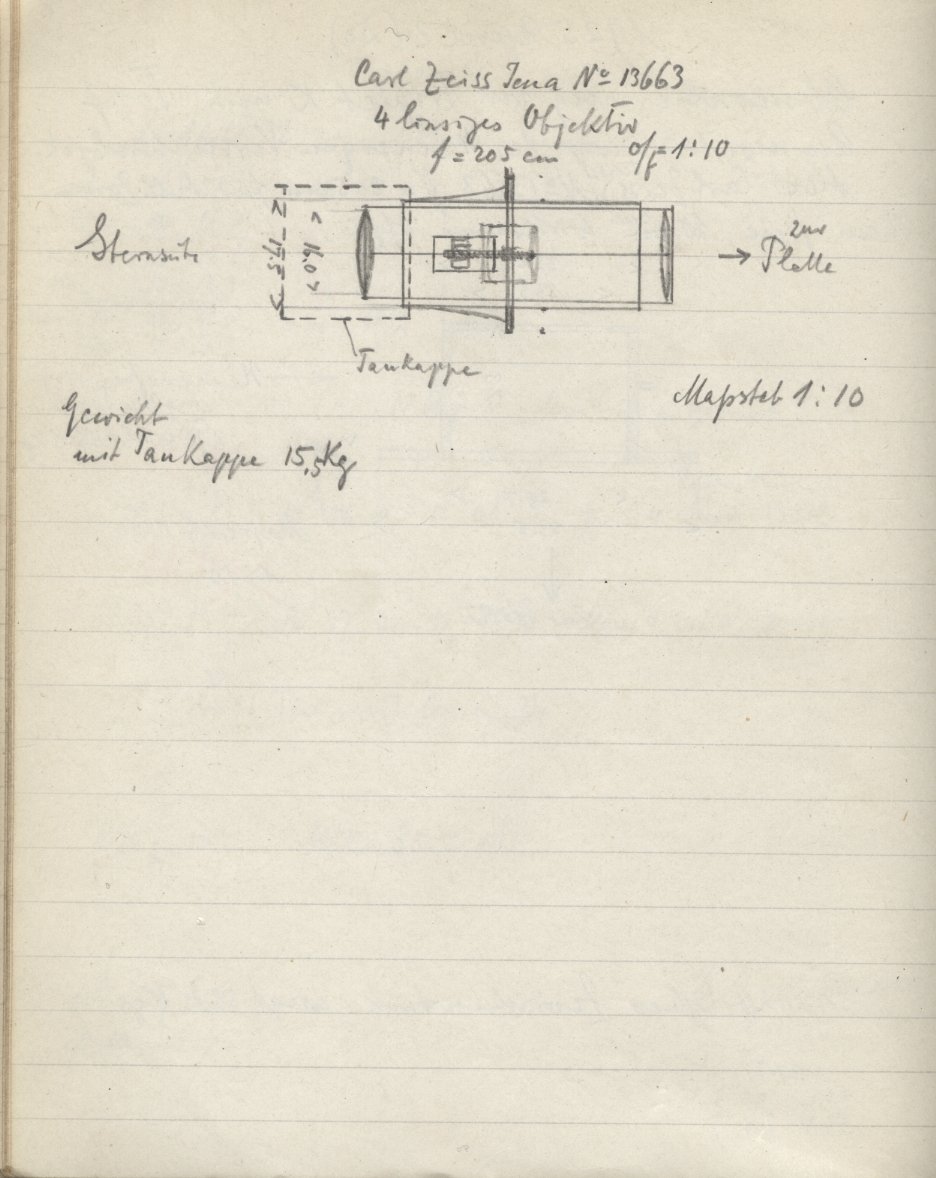 Carl Zeiss Jena Nº 13663
4 linsiges Objektiv
f = 205 cm o/f = 1:10
Sternseite
17,5
16,0
zur
→ Platte
Taukappe
Maßstab 1:10
Gewicht
mit Taukappe 15,5 Kg